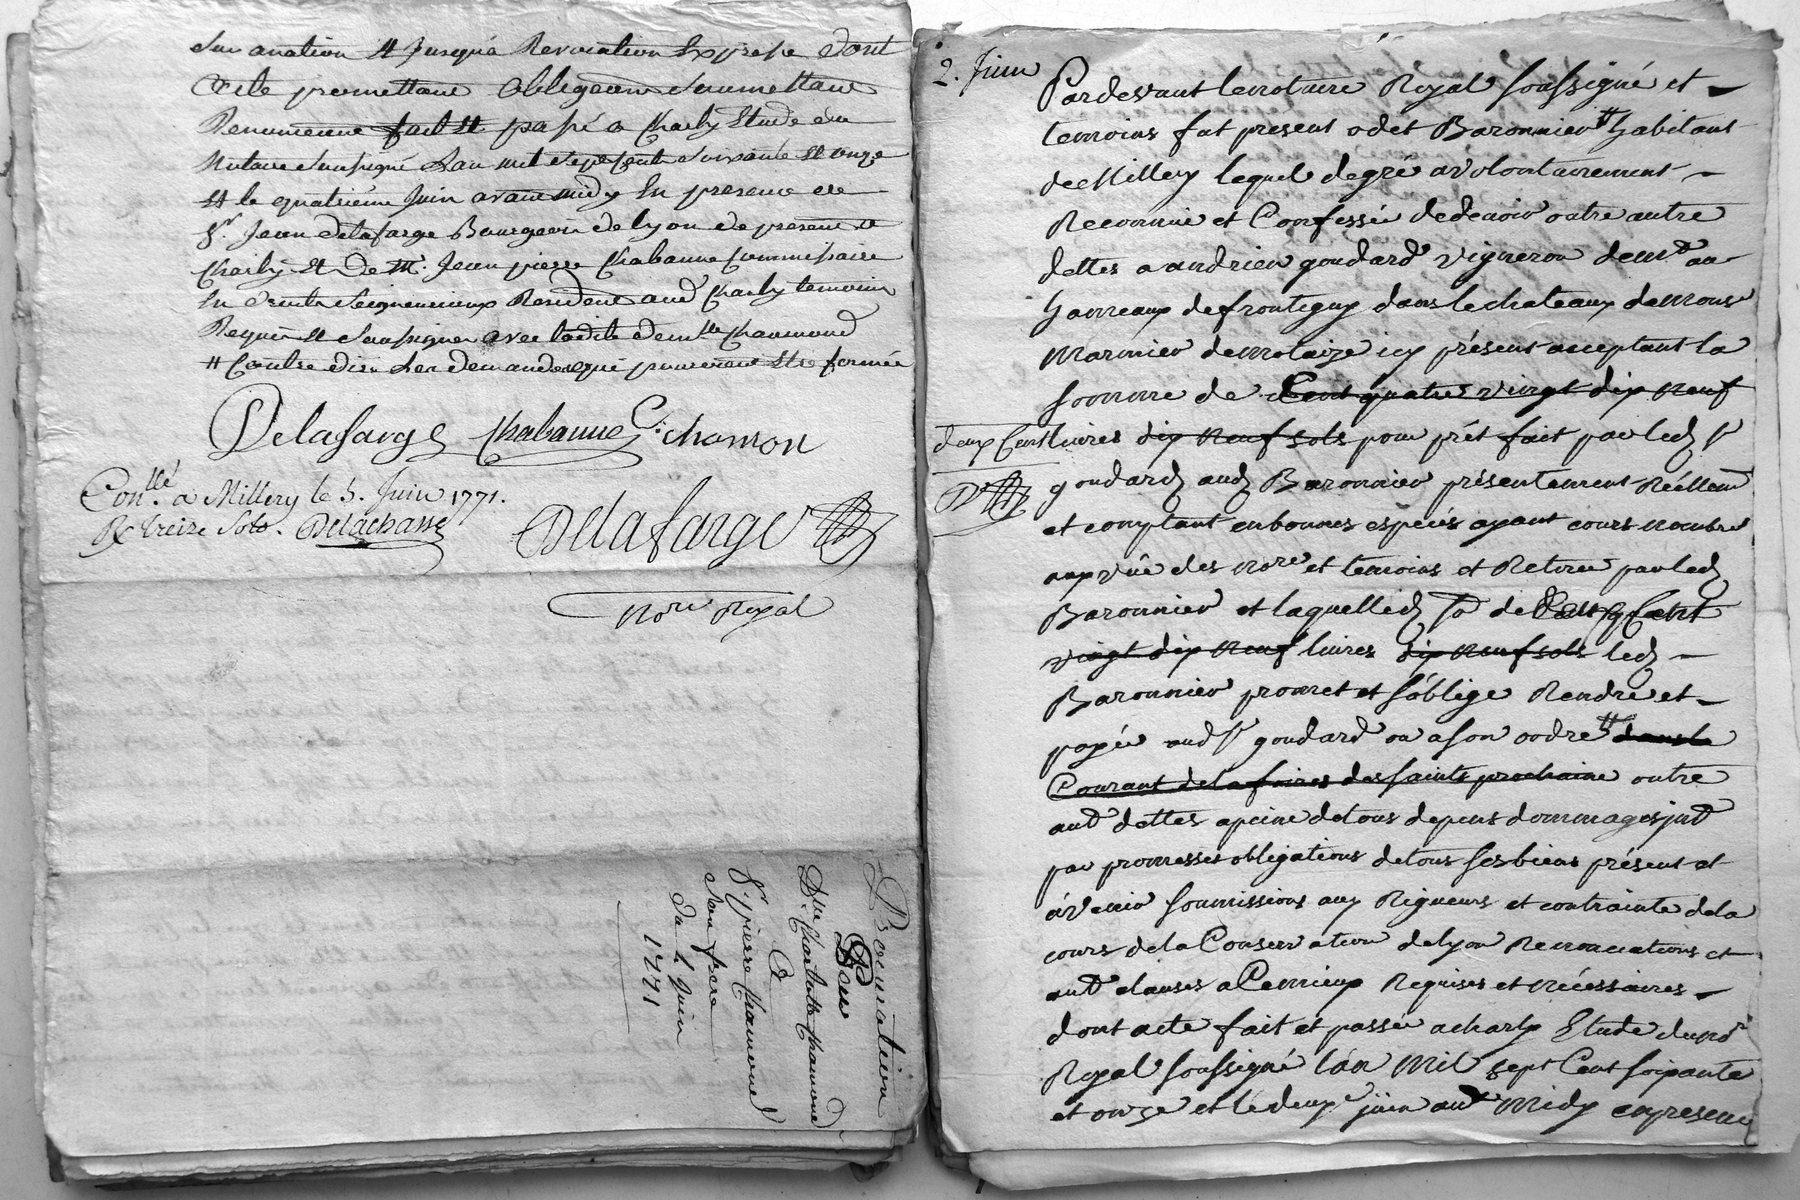 Suranation et jusqu'a Revocation Expresse dont
acte promettant obligeant soumettant
Renonceant fait et passé a Charly Etude du
Notaire soussigné L'an mil sept cents soixante et onze
et le quatrième Juin avant midy En presence de
Sr. Jean delafarge Bourgeois de lyon de present a
Charly et de Me. Jean pierre Chabanne Commissaire
En droits seigneuriaux Resident aud Charly temoins
Requis et soussignés avec ladite demlle Chaumond
# Contre d'iu les demandes qui pourroient etre formée
Delafarge Chabanne C. chomon
Conllé a Millery le 5. Juin 1771.
R treize sols. Delachasse
Delafarge
Nore Royal
Procuration
Pour
Dlle Charlotte Chaumond
a
Sr. pierre Chaumond
son frere
du 4 Juin
1771
2. Juin
Pardevant le notaire Royal soussigné et
temoins fut present odet Baronnier # habitant
de Millery lequel de gré a volontairement
Reconnu et Confessé de devoir outre autre
dettes a andrieu goudard vigneron demt au
hameaux de frontigny dans le chateaux de Monsr
Marinier demolaize icy présent acceptant la
somme de Cent quatre vingt dix neuf
deux Cents livres dix neuf sols pour prét fait par led Sr
goudard aud Baronnier présentement Réellemt
et comptant en bonnes espéces ayant cours nombré
aux vüe des nore et temoins et Retiré par led
Baronnier et laquelled Se de Cent
vingt dix neuf livres dix neuf sols led
Baronnier promet et s'oblige Rendre et
payér aud Sr goudard ou a son ordre # dans le
Courant de la foires des saints prochaine outre
autd dettes apeine de tous depens dommages intt
par promesses obligations de tous ses biens présent et
avenir soumissions aux Rigueurs et contrainte de la
cours de la Conservation de lyon Renonciations et
autd clauses a Ce mieux Requises et nécéssaires
dont acte fait et passée a charly Etude du nore
Royal soussigné l'an mil sept Cent soixante
et onze et le deuxe jüin avt Midy en presence